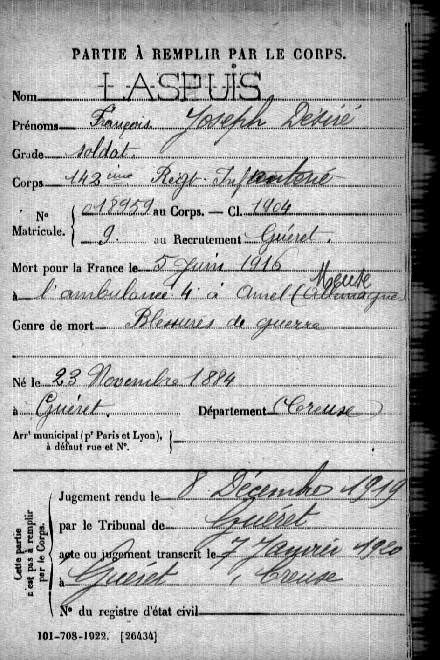 PARTIE À REMPLIR PAR LE CORPS.
Nom LASPUIS
Prénoms François Joseph Désiré
Grade soldat.
Corps 143ème Régt. Infanterie
N° Matricule. { 018959 au Corps. — Cl. 1904
9. au Recrutement Guéret.
Mort pour la France le 5 Juin 1916
Meuse
à l'ambulance 4 à Amel (Allemagne)
Genre de mort Blessures de guerre
Né le 23 Novembre 1884
à Guéret. Département (Creuse)
Arrt municipal (pr Paris et Lyon), à défaut rue et N°. {
Cette partie n'est pas à remplir par le Corps.
Jugement rendu le 8 Décembre 1919
par le Tribunal de Guéret
acte ou jugement transcrit le 7 Janvier 1920
à Guéret, Creuse
N° du registre d'état civil
101-708-1922. [26434]